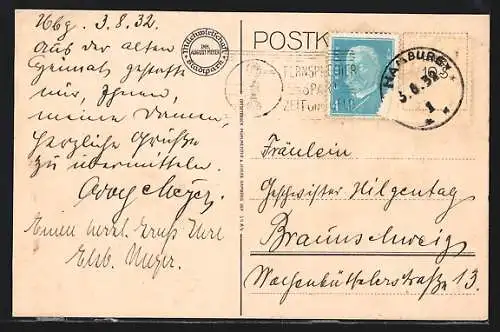 Hbg. 3.8.32.
Aus der alten
Heimat gestatte
mir, Ihnen,
meine Damen,
herzliche Grüße
zu übermitteln.
Meyer.
Einen herzl. Gruß Ihre
Elsb. Meyer.
Milchwirtschaft
INH. AUGUST MEYER
Stadtpark
POSTK
FERNSPRECHER
SPART
ZEIT UND GELD
HAMBURG
1
Fräulein
Geschwister Hilgentag
Braunschweig
Wolfenbüttelerstraße 13.